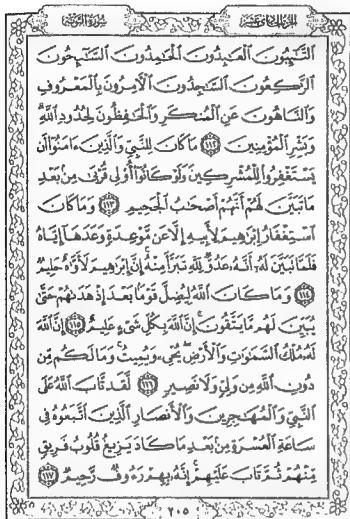 الجزء الحادي عشر سورة التوبة
التَّٰٓئِبُونَ الْعَٰبِدُونَ الْحَٰمِدُونَ السَّٰٓئِحُونَ
الرَّٰكِعُونَ السَّٰجِدُونَ الْءَامِرُونَ بِالْمَعْرُوفِ
وَالنَّاهُونَ عَنِ الْمُنكَرِ وَالْحَٰفِظُونَ لِحُدُودِ اللَّهِ
وَبَشِّرِ الْمُؤْمِنِينَ ١١٢ مَا كَانَ لِلنَّبِيِّ وَالَّذِينَ ءَامَنُوٓا أَن
يَسْتَغْفِرُوا لِلْمُشْرِكِينَ وَلَوْ كَانُوٓا أُولِي قُرْبَىٰ مِنۢ بَعْدِ
مَا تَبَيَّنَ لَهُمْ أَنَّهُمْ أَصْحَٰبُ الْجَحِيمِ ١١٣ وَمَا كَانَ
اسْتِغْفَارُ إِبْرَٰهِيمَ لِأَبِيهِ إِلَّا عَن مَّوْعِدَةٍ وَعَدَهَآ إِيَّاهُ
فَلَمَّا تَبَيَّنَ لَهُۥٓ أَنَّهُۥ عَدُوٌّ لِّلَّهِ تَبَرَّأَ مِنْهُ إِنَّ إِبْرَٰهِيمَ لَأَوَّٰهٌ حَلِيمٌ
١١٤ وَمَا كَانَ اللَّهُ لِيُضِلَّ قَوْمًۢا بَعْدَ إِذْ هَدَىٰهُمْ حَتَّىٰ
يُبَيِّنَ لَهُم مَّا يَتَّقُونَ إِنَّ اللَّهَ بِكُلِّ شَىْءٍ عَلِيمٌ ١١٥ إِنَّ اللَّهَ
لَهُۥ مُلْكُ السَّمَٰوَٰتِ وَالْأَرْضِ يُحْىِۦ وَيُمِيتُ وَمَا لَكُم مِّن
دُونِ اللَّهِ مِن وَلِىٍّ وَلَا نَصِيرٍ ١١٦ لَّقَد تَّابَ اللَّهُ عَلَى
النَّبِيِّ وَالْمُهَٰجِرِينَ وَالْأَنصَارِ الَّذِينَ اتَّبَعُوهُ فِي
سَاعَةِ الْعُسْرَةِ مِنۢ بَعْدِ مَا كَادَ يَزِيغُ قُلُوبُ فَرِيقٍ
مِّنْهُمْ ثُمَّ تَابَ عَلَيْهِمْ إِنَّهُۥ بِهِمْ رَءُوفٌ رَّحِيمٌ ١١٧
٢٠٥